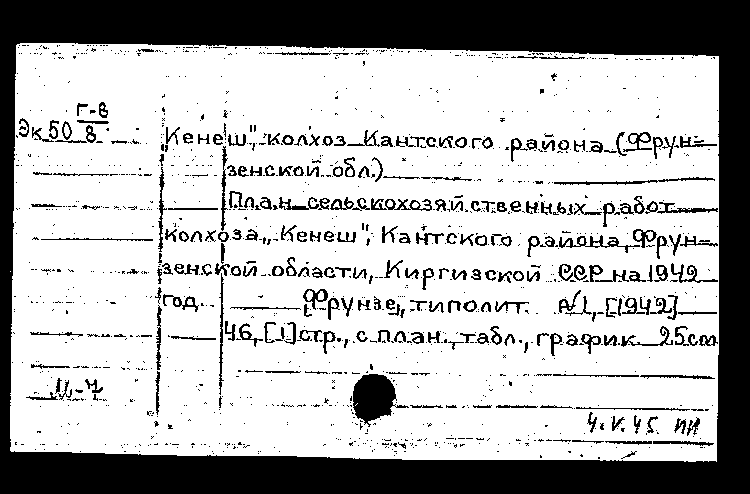 Г-8
Эк 50 8
„Кенеш", колхоз Кантского района (Фрун=
зенской обл.)
План сельскохозяйственных работ
колхоза „Кенеш", Кантского района, Фрун=
зенской области, Киргизской ССР на 1942
год. [Фрунзе, типолит. №1, [1942]
46, [1] стр., с план., табл., график. 25см
М-7
4.V.45. ПИ